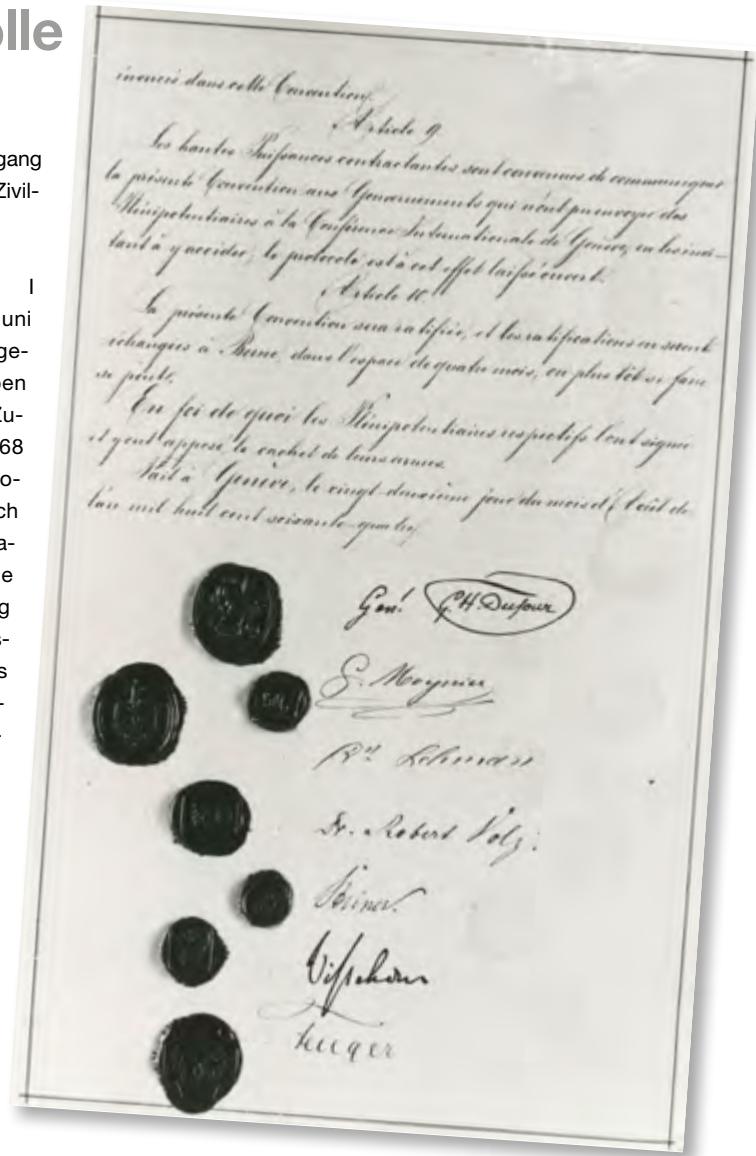 olle
gang
Zivil-
I
uni
ge-
ben
Zu-
68
o-
ch
a-
e
g
s-
s
-
énoncés dans cette Convention.
Article 9.
Les hautes Puissances contractantes sont convenues de communiquer
la présente Convention aux Gouvernements qui n'ont pu envoyer des
Plénipotentiaires à la Conférence Internationale de Genève, en les invi-
tant à y accéder; le protocole est à cet effet laissé ouvert.
Article 10.
La présente Convention sera ratifiée, et les ratifications en seront
échangées à Berne, dans l'espace de quatre mois, ou plus tôt si faire
se peut.
En foi de quoi les Plénipotentiaires respectifs l'ont signée
et y ont apposé le cachet de leurs armes.
Fait à Genève, le vingt-deuxième jour du mois d'Août de
l'an mil huit cent soixante-quatre.
Gén! G.H. Dufour
G. Moynier
Dr Lehmann
Dr. Robert Volz.
Steiner.
Visschers